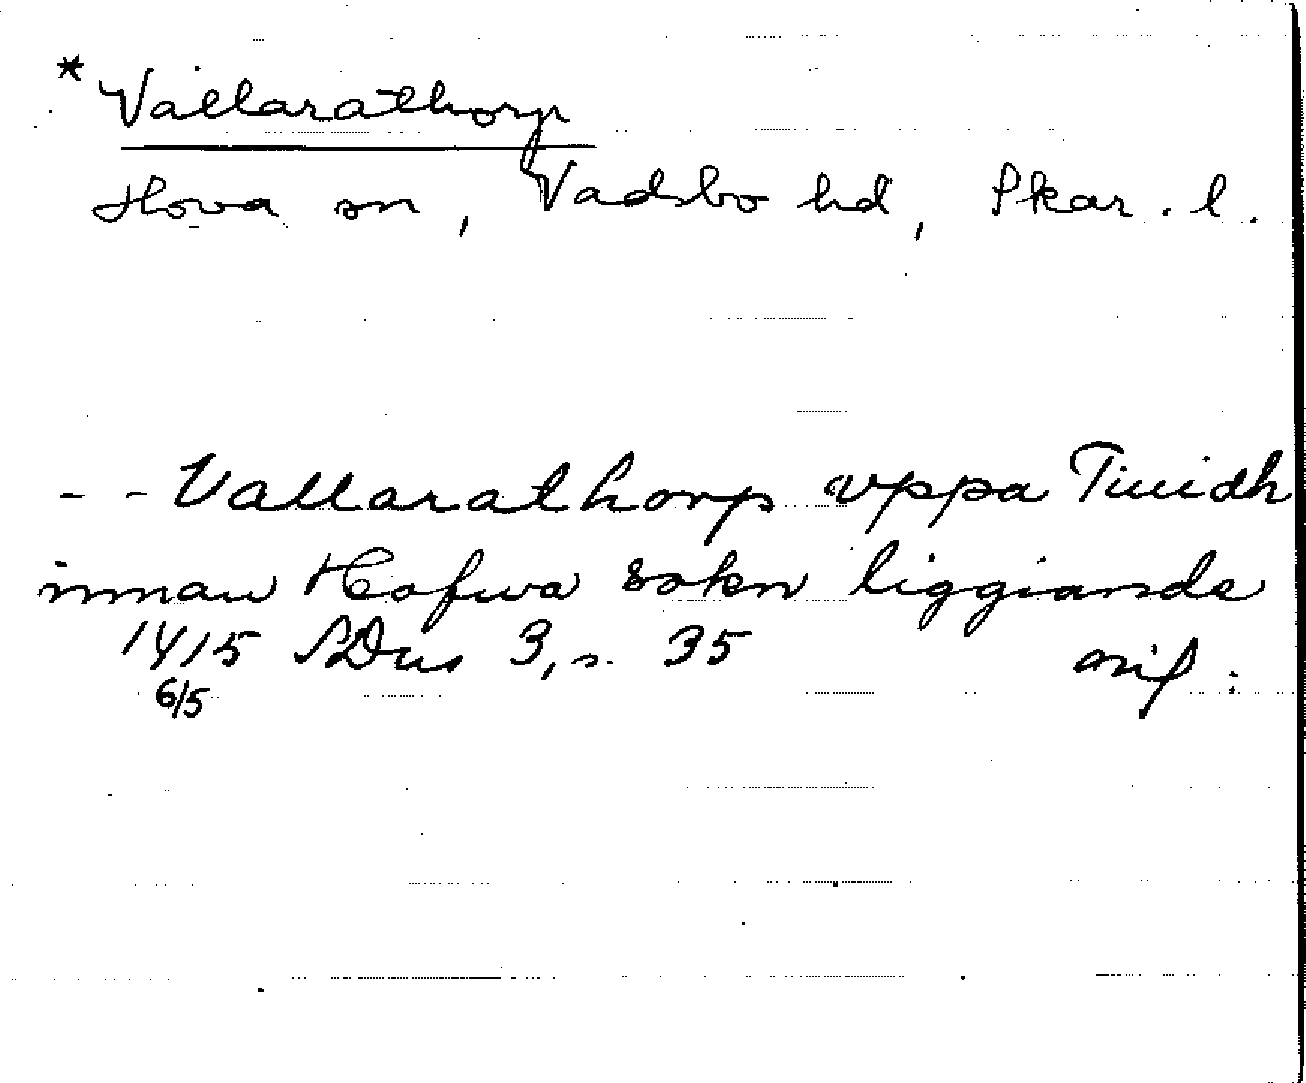 * Vallarathorp
Hova sn, Vadsbo hd, Skar. l.
- - Vallarathorp vppa Tiuidh
innan Hofwa sokn liggiande
1415 SDns 3, s. 35 avskr:
6/5